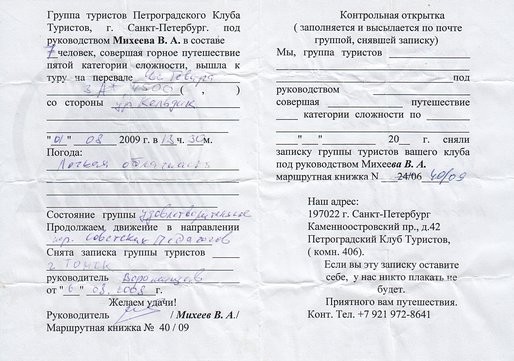 Группа туристов Петроградского Клуба
Туристов, г. Санкт-Петербург. под
руководством Михеева В. А. в составе
7 человек, совершая горное путешествие
пятой категории сложности, вышла к
туру на перевале
3А* 4300 ( , )
со стороны
"01" 08 2009 г. в 13 ч. 30 м.
Погода:
Легкая облачность
Состояние группы удовлетворительное
Продолжаем движение в направлении
пер. Советских Педагогов
Снята записка группы туристов
г Томск
руководитель
от "6" 08. 2008 г.
Желаем удачи!
Руководитель / Михеев В. А./
Маршрутная книжка № 40 / 09
Контрольная открытка
( заполняется и высылается по почте
группой, снявшей записку)
Мы, группа туристов
под
руководством
совершая путешествие
категории сложности по
" " 20 г. сняли
записку группы туристов вашего клуба
под руководством Михеева В. А.
маршрутная книжка N 24/06 40/09
Наш адрес:
197022 г. Санкт-Петербург
Каменноостровский пр., д.42
Петроградский Клуб Туристов,
( комн. 406).
Если вы эту записку оставите
себе, у нас никто плакать не
будет.
Приятного вам путешествия.
Конт. Тел. +7 921 972-8641